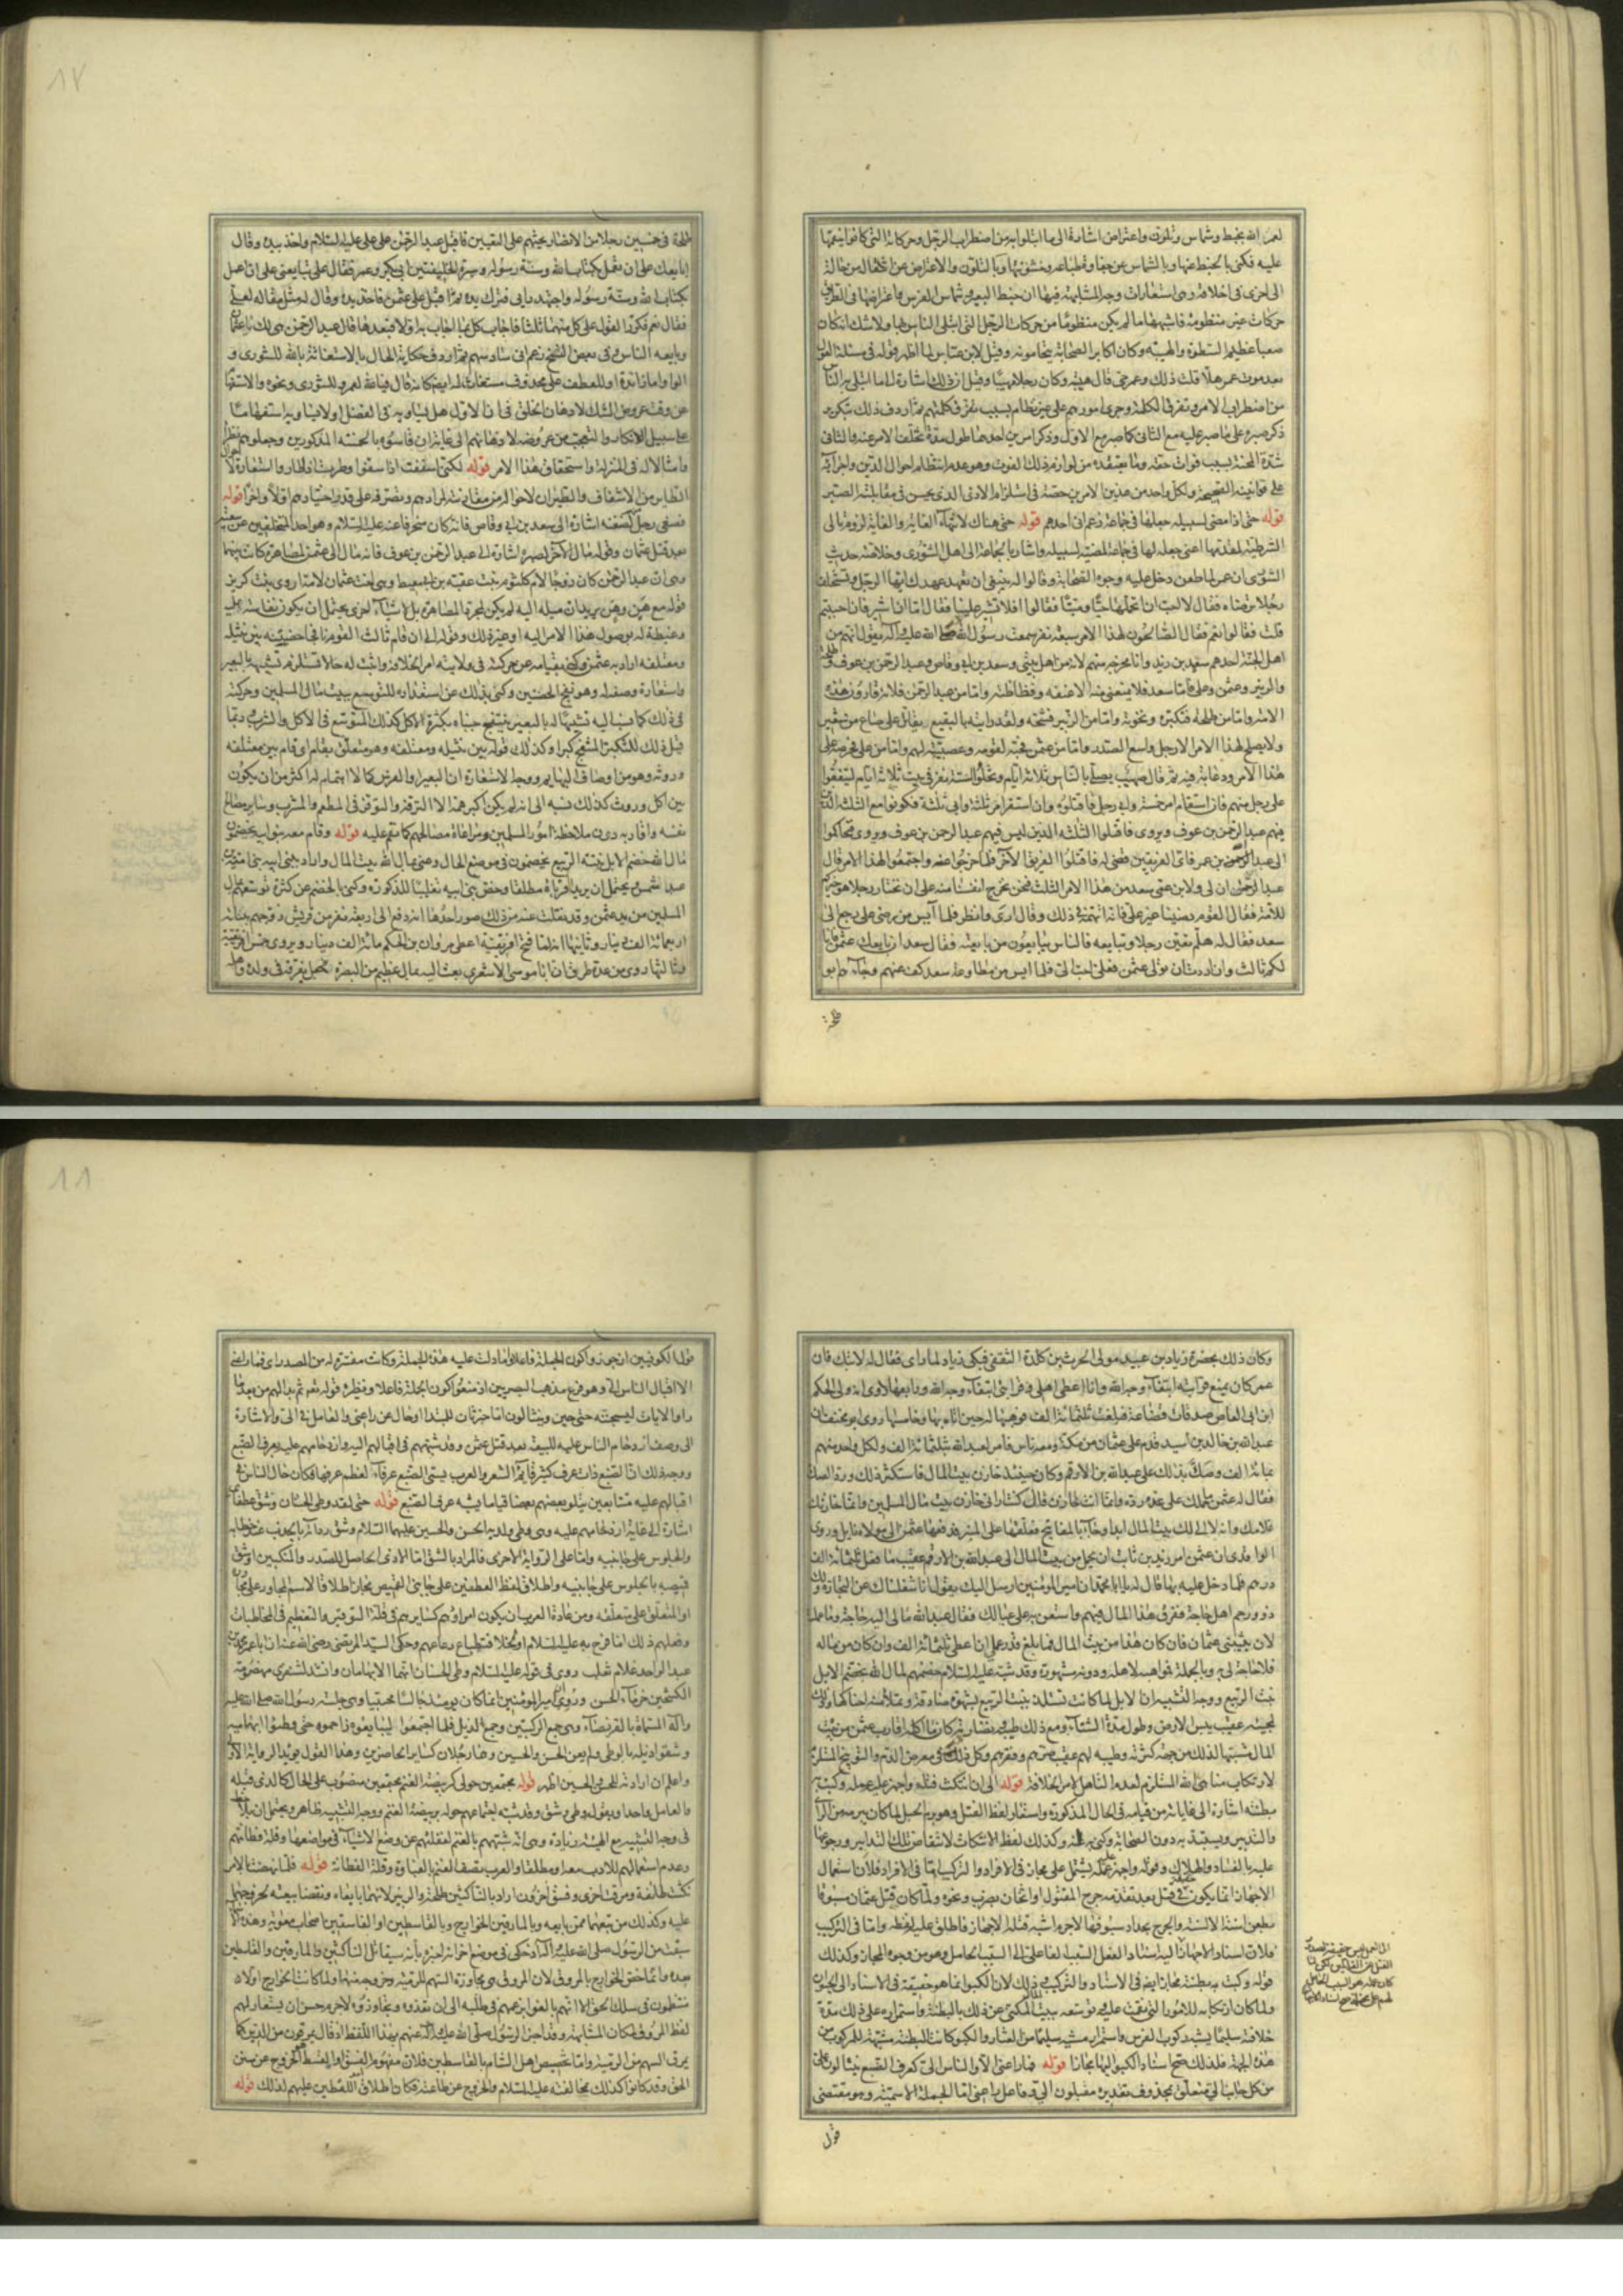 لعمر الله بخبط وشماس وتلون واعتراض اشارة الى ما ابتلوا به من اضطراب الرجل وحركاته التي كانوا ينقمها
عليه فكنى بالخبط عنها وبالشماس عن جفاوة طباعه وخشونتها وبالتلون والاعتراض عن انتقاله من حالة
الى اخرى في اخلاقه وهي استعارات وجه المشابهة فيها ان خبط البعير وشماس الفرس واعتراضها في الطريق
حركات غير منظومة فاشبهها ما لم يكن منظوما من حركات الرجل التي ابتلى الناس بها ولا شك انه كان
صعبا عظيم السطوة والهيبة وكان اكابر الصحابة يتحامونه وقيل لابن عباس لما اظهر قوله في مسئلة العول
بعد موت عمر هلا قلت ذلك وعمر حي قال هبته وكان رجلا مهيبا وقيل ان ذلك اشارة الى ما ابتلى به الناس
من اضطراب الامر وتفرق الكلمة وجرى امورهم على غير نظام بسبب تفرق كلمتهم ثم اردف ذلك بتكرير
ذكر صبره على ما صبر عليه مع الثاني كما صبر مع الاول وذكر امرين احدهما طول مدة تخلف الامر عنه والثاني
شدة المحنة بسبب فوات حقه وما يعتقده من لوازم ذلك الفوت وهو عدم انتظام احوال الدين واجرائه
على قوانينه الصحيحة ولكل واحد من هذين الامرين حصة في استلزام الاذى الذي يحسن في مقابلته الصبر
قوله حتى اذا مضى لسبيله جعلها في جماعة زعم اني احدهم قوله حتى هناك لانتهاء الغاية والغاية لزوم تالي
الشرطية لمقدمها اعني جعله لها في جماعة لمضيه لسبيله واشار بالجماعة الى اهل الشورى وخلاصة حديث
الشورى ان عمر لما طعن دخل عليه وجوه الصحابة وقالوا له ينبغي ان تعهد عهدك ايها الرجل وتستخلف
رجلا ترضاه فقال لا احب ان اتحملها حيا وميتا فقالوا افلا تشير علينا فقال اما ان اشير فان احببتم
قلت فقالوا نعم فقال الصالحون لهذا الامر سبعة نفر سمعت رسول الله صلى الله عليه وآله يقول انهم من
اهل الجنة احدهم سعيد بن زيد وانا مخرجه منهم لانه من اهل بيتي وسعد بن ابي وقاص وعبد الرحمن بن عوف وطلحة
والزبير وعثمن وعلي فاما سعد فلا يمنعني منه الا عنفه وفظاظته واما من عبد الرحمن فلانه قارون هذه
الامة واما من طلحة فتكبره ونخوته واما من الزبير فشحه ولقد رايته بالبقيع يقاتل على صاع من شعير
ولا يصلح لهذا الامر الا رجل واسع الصدر واما من عثمن فحبه لقومه وعصبيته لهم واما من علي فحرصه على
هذا الامر ودعابة فيه ثم قال صهيب يصلي بالناس ثلاثة ايام وتخلوا الستة نفر في بيت ثلاثة ايام ليتفقوا
على رجل منهم فان استقام امر خمسة وابى رجل فاقتلوه وان استقر امر ثلثة وابى ثلثة فكونوا مع الثلثة الذين
فيهم عبد الرحمن بن عوف ويروى فاقتلوا الثلثة الذين ليس فيهم عبد الرحمن بن عوف ويروى فتحاكموا
الى عبد الله بن عمر فاي الفريقين قضى له فاقتلوا الفريق الآخر فلما خرجوا عنه واجتمعوا لهذا الامر قال
عبد الرحمن ان لي ولابن عمي سعد من هذا الامر الثلث فنحن نخرج انفسنا منه على ان نختار رجلا هو خيركم
للامة فقال القوم رضينا غير علي فانه اتهمه في ذلك وقال ارى وانظر فلما آيس من رضى علي رجع الى
سعد فقال له هلم نعين رجلا ونبايعه فالناس يبايعون من بايعته فقال سعد ان بايعك عثمن فانا
لكم ثالث وان اردت ان تولى عثمن فعلي احب الي فلما ايس من مطاوعة سعد كف عنهم وجاءهم ابو
طلحة
١٧
طلحة في خمسين رجلا من الانصار يحثهم على التعيين فاقبل عبد الرحمن على علي عليه السلام واخذ بيده وقال
ابايعك على ان تعمل بكتاب الله وسنة رسوله وسيرة الخليفتين ابي بكر وعمر فقال علي تبايعني على ان اعمل
بكتاب الله وسنة رسوله واجتهد رايي فترك يده ثم اقبل على عثمن فاخذ بيده وقال له مثل مقاله لعلي
فقال نعم فكرر القول على كل منهما ثلثا فاجاب كل بما اجاب به اولا فبعدها قال عبد الرحمن هي لك يا عثمان
وبايعه الناس وفي بعض النسخ زعم اني سادسهم ثم اردف حكاية الحال بالاستغاثة بالله للشورى و
الواو اما زائدة او للعطف على محذوف مستغاث له ايضا كانه قال فيالله لعمر وللشورى ونحوه والاستفهام
عن وقت عروض الشك لاذهان الخلق في ان الاول هل يساويه في الفضل او لا يساويه استفهاما
على سبيل الانكار والتعجب من عروضه لاذهانهم الى غاية ان قاسوه بالخمسة المذكورين وجعلوهم نظراء
وامثالا له في المنزلة واستحقاق هذا الامر قوله لكني اسففت اذا سفوا وطرت اذا طاروا استعارة لاحوال
الطاير من الاسفاف والطيران لاحواله من مقارنته لمرادهم وتصرفه على قدر اختيارهم اولا واخرا قوله
فصغى رجل لضغنه اشارة الى سعد بن ابي وقاص فانه كان منحرفا عنه عليه السلام وهو احد المتخلفين عن بيعته
بعد قتل عثمان وقوله ومال الآخر لصهره اشارة الى عبد الرحمن بن عوف فانه مال الى عثمن لمصاهرة كانت بينهما
وهي ان عبد الرحمن كان زوجا لام كلثوم بنت عقبة بن ابي معيط وهي اخت عثمان لامه اروى بنت كريز
قوله مع هن وهن يريد ان ميله اليه لم يكن لمجرد المصاهرة بل لاشياء اخرى يحتمل ان يكون نفاسة عليه
وغبطة له بوصول هذا الامر اليه او غير ذلك وقوله الى ان قام ثالث القوم نافجا حضنيه بين نثيله
ومعتلفه اراد به عثمن وكنى بقيامه عن حركته في ولايته امر الخلافة واثبت له حالا تستلزم تشبيهه بالبعير
واستعارة وصفه له وهو نفج الحضنين وكنى بذلك عن استعداده للتوسع ببيت مال المسلمين وحركته
في ذلك كما ينسب اليه تشبيها له بالبعير ينتفج جنباه بكثرة الاكل كذلك المتوسع في الاكل والشرب وربما
قيل ذلك للتكبر المنتفج كبرا وكذلك قوله بين نثيله ومعتلفه وهو متعلق بقام اي قام بين معتلفه
وروثه وهو من اوصاف البهايم ووجه الاستعارة ان البعير والفرس كما لا اهتمام له اكثر من ان يكون
بين اكل وروث كذلك نسبه الى انه لم يكن اكبر همه الا الترفه والتوفر في المطعم والمشرب وساير مصالح
نفسه واقاربه دون ملاحظة امور المسلمين ومراعاة مصالحهم كما نقم عليه قوله وقام معه بنو ابيه يخضمون
مال الله خضم الابل نبتة الربيع يخضمون في موضع الحال وعنى بمال الله بيت المال واراد ببني ابيه بني امية بن
عبد شمس ويحتمل ان يريد اقرباه مطلقا وخص بني ابيه تغليبا للذكورة وكنى بالخضم عن كثرة توسعهم بمال
المسلمين من يد عثمن وقد نقلت عنه من ذلك صور احدها انه دفع الى اربعة نفر من قريش زوجهم ببناته
اربعمائة الف دينار وثانيها انه لما فتح افريقية اعطى مروان بن الحكم مائة الف دينار ويروى خمس افريقية
وثالثها روي من عدة طرق ان ابا موسى الاشعري بعث اليه بمال عظيم من البصرة فجعل يفرقه في ولده واهله
وكان ذلك بحضرة زياد بن عبيد مولى الحرث بن كلدة الثقفي فبكى زياد لما راى فقال له لا تبك فان
عمر كان يمنع قرابته ابتغاء وجه الله وانا اعطي اهلي وقرابتي ابتغاء وجه الله ورابعها لاوى انه ولى الحكم
ابن ابي العاص صدقات قضاعة فبلغت ثلثمائة الف فوهبها له حين اتاه بها وخامسها روى ابو مخنف ان
عبد الله بن خالد بن اسيد قدم على عثمان من مكة ومعه ناس فامر لعبد الله بثلثمائة الف ولكل واحد منهم
بمائة الف وصك بذلك على عبد الله بن الارقم وكان حينئذ خازن بيت المال فاستكثر ذلك ورد الصك
فقال له عثمن ما حملك على عدم رده وانما انت خازن قال كنت اراني خازن بيت مال المسلمين وانما خازنك
غلامك والله لا الي لك بيت المال ابدا وجاء بالمفاتيح فعلقها على المنبر فدفعها عثمن الى مولاه نايل وروى
الواقدي ان عثمن امر زيد بن ثابت ان يحمل من بيت المال الى عبد الله بن الارقم عقيب ما فعل ثلثمائة الف
درهم فلما دخل عليه بها قال له يا ابا محمد ان امير المؤمنين ارسل اليك يقول انا شغلناك عن التجارة ولك
ذوو رحم اهل حاجة ففرق هذا المال فيهم واستعن به على عيالك فقال عبد الله ما لي اليه حاجة وما عملت
لان يثيبني عثمان فان كان هذا من بيت المال فما بلغ قدر عملي ان اعطى ثلثمائة الف وان كان من ماله
فلا حاجة لي به وبالجملة فمواهبه لاهله وذويه مشهورة وقد شبه عليه السلام خضمهم لمال الله بخضم الابل
نبت الربيع ووجه التشبيه ان الابل لما كانت تستلذ بنبت الربيع بشهوة صادقة وتملأ منه احناكها وذلك
لمجيئه عقيب يبس الارض وطول مدة الشتاء ومع ذلك طيبه ونضارته كان ما اكله اقارب عثمن من بيت
المال مشبها لذلك من جهة كثرته وطيبه لهم عقيب ضرهم وفقرهم وكل ذلك في معرض الذم والتوبيخ المستلزم
لارتكاب مناهي الله المستلزم لعدم التأهل لامر الخلافة قوله الى ان انتكث فتله واجهز عليه عمله وكبت به
بطنته اشارة الى غايات من قيامه في الحال المذكورة واستعار لفظ الفتل وهو برم الحبل لما كان يبرمه من الراي
والتدبير ويستبد به دون الصحابة وكنى به عنه وكذلك لفظ الانتكاث لانتقاض تلك التدابير ورجوعها
عليه بالفساد والهلاك وقوله واجهز عليه عمله يشتمل على مجاز في الافراد والتركيب اما في الافراد فلان استعمال
الاجهاز انما يكون حقيقة في قتل بعد تقدم جرح المقتول او اثخان بضرب ونحوه ولما كان قتل عثمان مسبوقا
بطعن اسنة الالسنة والجرح بحداد سيوفها لا جرم اشبه قتله الاجهاز فاطلق عليه لفظه واما في التركيب
فلان اسناد الاجهاز الى عمله ليس اسناد الفعل الى السبب الفاعلي بل الى السبب الحامل وهو من وجوه المجاز وكذلك
قوله وكبت به بطنته مجاز ايضا في الاسناد والتركيب وذلك لان الكبو انما هو حقيقة في الاسناد الى الحيوان
ولما كان ارتكابه للامور التي نقمت عليه وتوسعه ببيت المال المكنى عن ذلك بالبطنة واستمراره على ذلك مدة
خلافته سليما يشبه ركوب الفرس واستمرار مشيه سليما من العثار والكبو كانت البطنة مشبهة للمركوب من
هذه الجهة فلذلك صح اسناد الكبو اليها مجازا قوله فما راعني الا والناس الي كعرف الضبع ينثالون علي
من كل جانب الي متعلق بمحذوف تقديره مقبلون الي وفاعل راعني اما الجملة الاسمية وهو مقتضى
قول
١٨
قول الكوفيين اذ جوزوا كون الجملة فاعلا او ما دلت عليه هذه الجملة وكانت مفسرة له من المصدر اي فما راعني
الا اقبال الناس الي وهو فرع مذهب البصريين اذ منعوا كون الجملة فاعلا ونظيره قوله تعالى ثم بدا لهم من بعد ما
راوا الايات ليسجننه حتى حين وينثالون اما خبر ثان للمبتدا او حال عن راعني والعامل في الي والاشارة
الى وصف ازدحام الناس عليه للبيعة بعد قتل عثمن وقد شبههم في اقبالهم اليه وازدحامهم عليه بعرف الضبع
ووجه ذلك ان الضبع ذات عرف كثير قايم الشعر والعرب يسمى الضبع عرفاء لعظم عرفها فكان حال الناس في
اقبالهم عليه متتابعين يتلو بعضهم بعضا قياما يشبه عرف الضبع قوله حتى لقد وطئ الحسنان وشق عطفاي
اشارة الى غاية ازدحامهم عليه وهي وطي ولديه الحسن والحسين عليهما السلام وشق ردائه بالجذب عند خطابه
والجلوس على جانبيه واما على الرواية الاخرى فالمراد بالشق اما الاذى الحاصل للصدر والمنكبين او شق
قميصه بالجلوس على جانبيه واطلاق لفظ العطفين على جانبي القميص مجاز اطلاقا لاسم المجاور على مجاوره
او المتعلق على متعلقه ومن عادة العرب ان يكون امراؤهم كسايرهم في قلة التوقير والتعظيم في المخاطبات
وفعلهم ذلك اما فرح به عليه السلام او لجلافة طباع رعاعهم وحكى السيد المرتضى رضي الله عنه ان ابا عمر محمد بن
عبد الواحد غلام ثعلب روى في قوله عليه السلام وطئ الحسنان انهما الابهامان وانشد للشنفرى مهضومة
الكشحين خرماء الحسن وروي ان امير المؤمنين انما كان يومئذ جالسا محتبيا وهي جلسة رسول الله صلى الله عليه
وآله المسماة بالقرفصاء وهي جمع الركبتين وجمع الذيل فلما اجتمعوا ليبايعوه زاحموه حتى وطئوا ابهاميه
وشقوا ذيله بالوطي ولم يعن الحسن والحسين وهما رجلان كساير الحاضرين وهذا القول يؤيد الرواية الاولى
واعلم ان ارادته للحسن والحسين اظهر قوله مجتمعين حولي كربيضة الغنم مجتمعين منصوب على الحال كالذي قبله
والعامل واحد او بقوله وطئ وشق وقد شبه اجتماعهم حوله بربيضة الغنم ووجه التشبيه ظاهر ويحتمل ان يلاحظ
في وجه التشبيه مع الهيئة زيادة وهي انه شبههم بالغنم لغفلتهم عن وضع الاشياء في مواضعها وقلة فطانتهم
وعدم استعمالهم للادب معه او مطلقا والعرب تصف الغنم بالغباوة وقلة الفطانة قوله فلما نهضت بالامر
نكثت طائفة ومرقت اخرى وفسق آخرون اراد بالناكثين طلحة والزبير لانهما بايعاه ونقضا بيعته بخروجهما
عليه وكذلك من تبعهما ممن بايعه وبالمارقين الخوارج وبالقاسطين او الفاسقين اصحاب معوية وهذه الاسماء
سبقت من الرسول صلى الله عليه وآله اذ حكي في موضع آخر انه اخبره بأنه سيقاتل الناكثين والمارقين والقاسطين
بعده وانما خص الخوارج بالمروق لان المروق وهو مجاوزة السهم للرمية وخروجه منها ولما كانت الخوارج اولا
منتظمون في سلك الحق الا انهم بالغوا بزعمهم في طلبه الى ان بعدوا وتجاوزوه لا جرم حسن ان يستعار لهم
لفظ المروق لمكان المشابهة وقد اخبر الرسول صلى الله عليه وآله عنهم بهذا اللفظ اذ قال يمرقون من الدين كما
يمرق السهم من الرمية واما تخصيص اهل الشام بالقاسطين فلان مفهوم الفسق او القسط هو الخروج عن سنن
الحق وقد كانوا كذلك بمخالفته عليه السلام والخروج عن طاعته فكان اطلاق احد اللفظين عليهم لذلك قوله